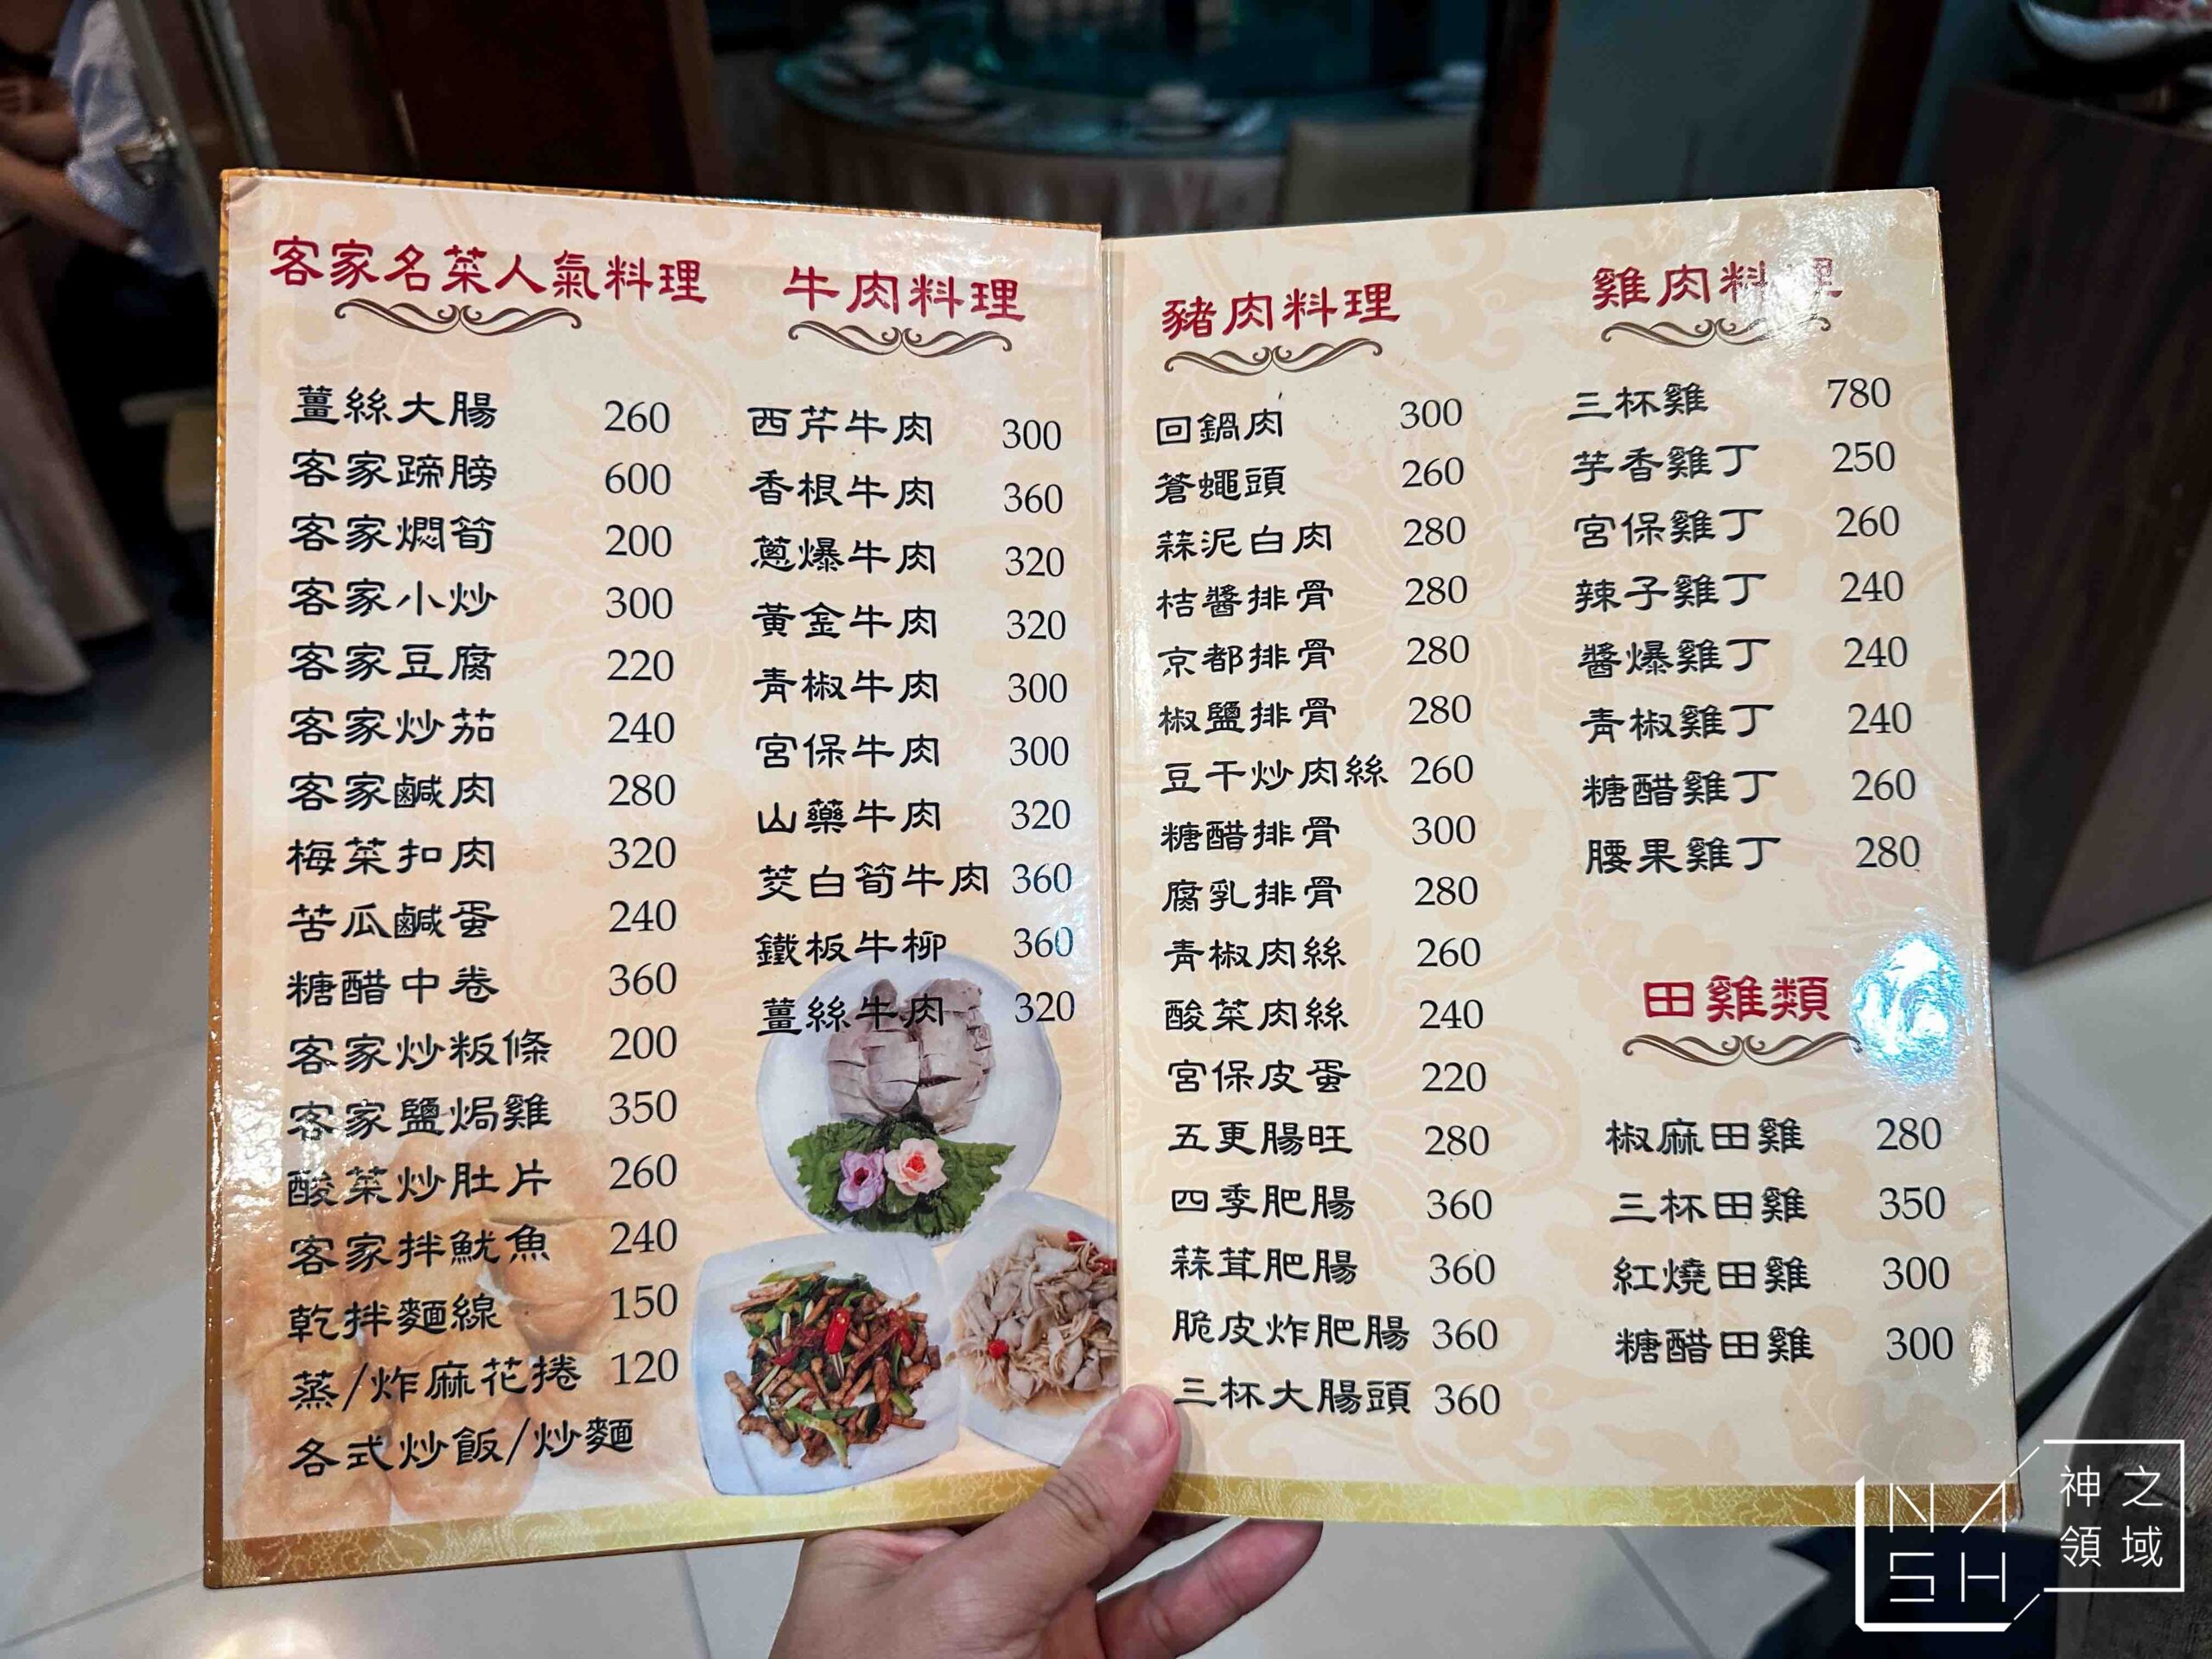 客家名菜人氣料理
薑絲大腸 260
客家蹄膀 600
客家燜筍 200
客家小炒 300
客家豆腐 220
客家炒茄 240
客家鹹肉 280
梅菜扣肉 320
苦瓜鹹蛋 240
糖醋中卷 360
客家炒粄條 200
客家鹽焗雞 350
酸菜炒肚片 260
客家拌魷魚 240
乾拌麵線 150
蒸/炸麻花捲 120
各式炒飯/炒麵
牛肉料理
西芹牛肉 300
香根牛肉 360
蔥爆牛肉 320
黃金牛肉 320
青椒牛肉 300
宮保牛肉 300
山藥牛肉 320
茭白筍牛肉 360
鐵板牛柳 360
薑絲牛肉 320
豬肉料理
回鍋肉 300
蒼蠅頭 260
蒜泥白肉 280
桔醬排骨 280
京都排骨 280
椒鹽排骨 280
豆干炒肉絲 260
糖醋排骨 300
腐乳排骨 280
青椒肉絲 260
酸菜肉絲 240
宮保皮蛋 220
五更腸旺 280
四季肥腸 360
蒜茸肥腸 360
脆皮炸肥腸 360
三杯大腸頭 360
雞肉料理
三杯雞 780
芋香雞丁 250
宮保雞丁 260
辣子雞丁 240
醬爆雞丁 240
青椒雞丁 240
糖醋雞丁 260
腰果雞丁 280
田雞類
椒麻田雞 280
三杯田雞 350
紅燒田雞 300
糖醋田雞 300
NA
SH
神之
領域